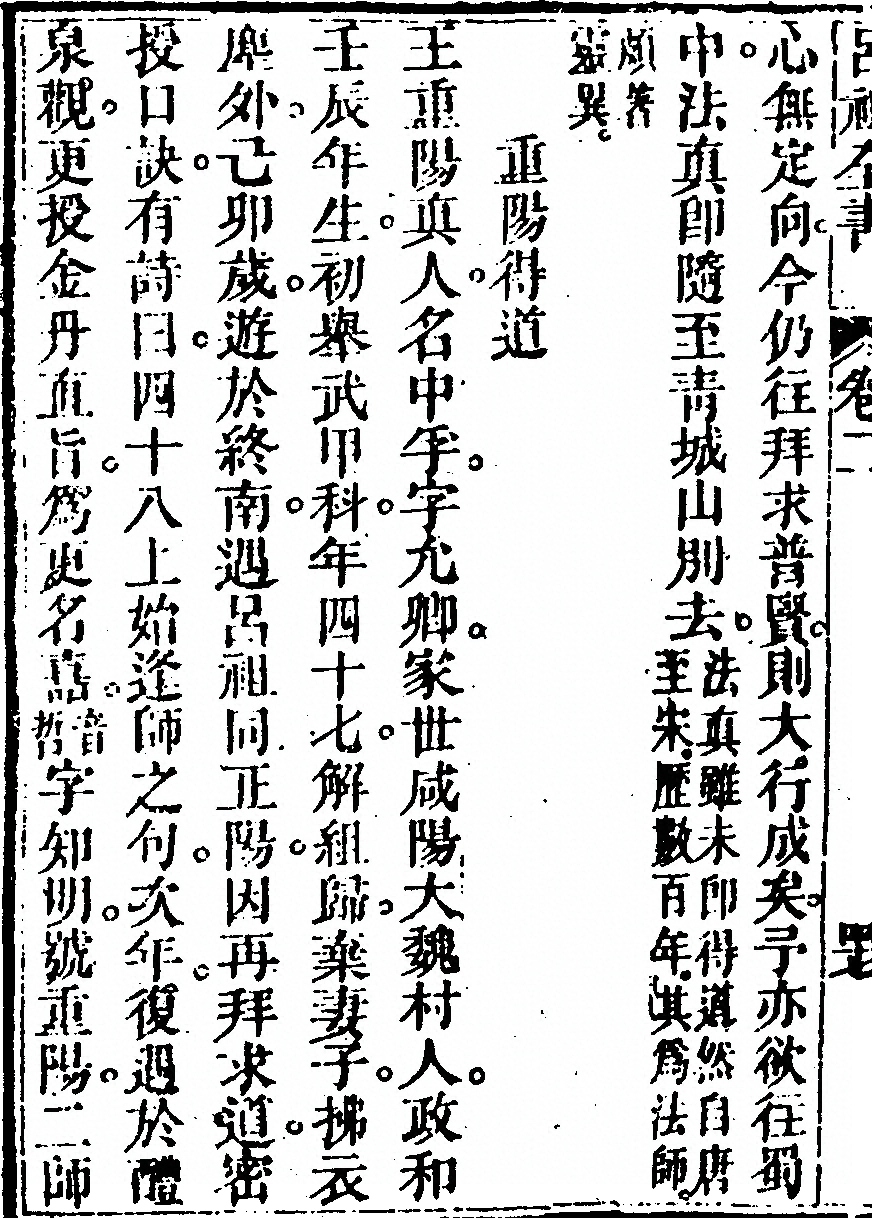 呂祖全書 卷二
心無定向。今仍往拜求普賢。則大行成矣。予亦欲往蜀
中。法真即隨至青城山別去。法真雖未即得道然自唐
至宋歷數百年其爲法師
頗著
靈異。
重陽得道
王重陽真人。名中孚。字允卿。家世咸陽大魏村人。政和
壬辰年生。初舉武甲科。年四十七。解組歸。棄妻子。拂衣
塵外。己卯歲。遊於終南。遇呂祖同正陽。因再拜求道。密
授口訣。有詩曰。四十八上始逢師之句。次年。復遇於醴
泉觀。更授金丹直旨。爲更名嚞。音
哲字知明。號重陽。二師